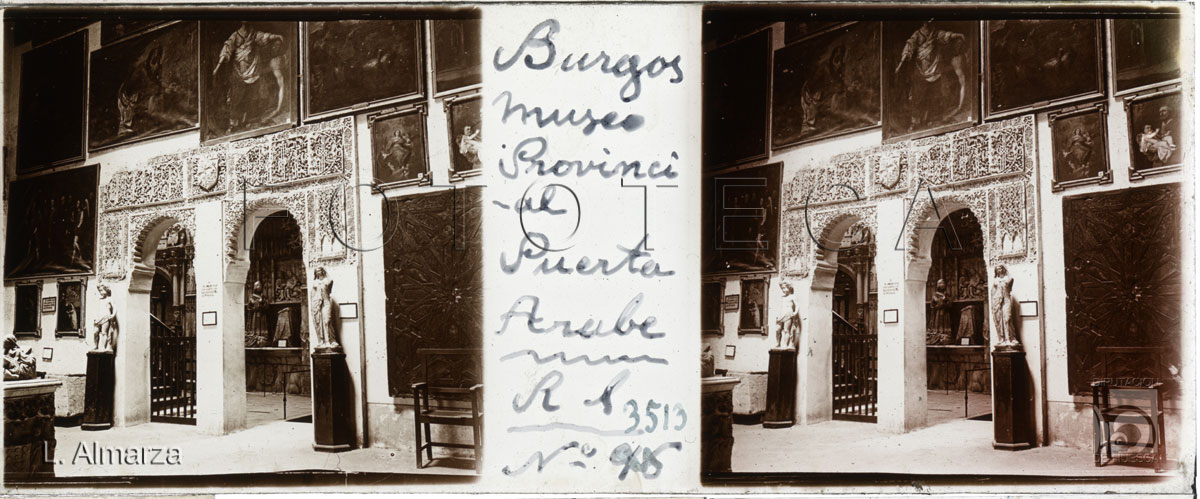 Burgos
Museo
Provinci
-al
Puerta
Arabe
R S
3513
Nº
FOTOTECA
L. Almarza
DIPUTACIÓN